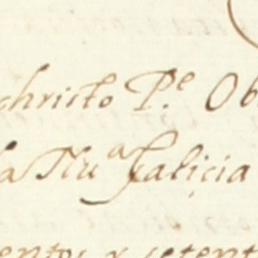 christo P.e Ob
la Nu.a Galicia
entos y setent